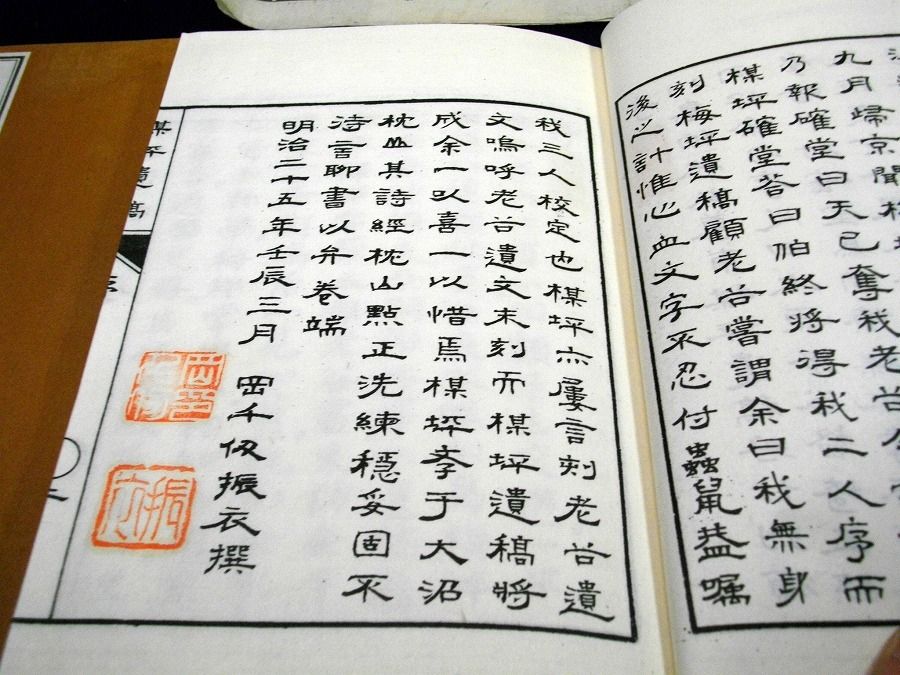 九月歸京聞
乃報確堂曰天已奪我老谷
楳坪確堂答曰怕終將得我二人序而
刻梅坪遺稿顧老谷嘗謂余曰我無身
後之計惟心血文字不忍付蟲鼠益囑
我三人校定也楳坪亦屢言刻老谷遺
文嗚呼老谷遺文未刻而楳坪遺稿將
成余一以喜一以惜焉楳坪斈于大沼
枕山其詩經枕山點正洗練穩妥固不
待言聊書以弁卷端
明治二十五年壬辰三月 岡千仭振衣撰
振衣
楳坪遺稿